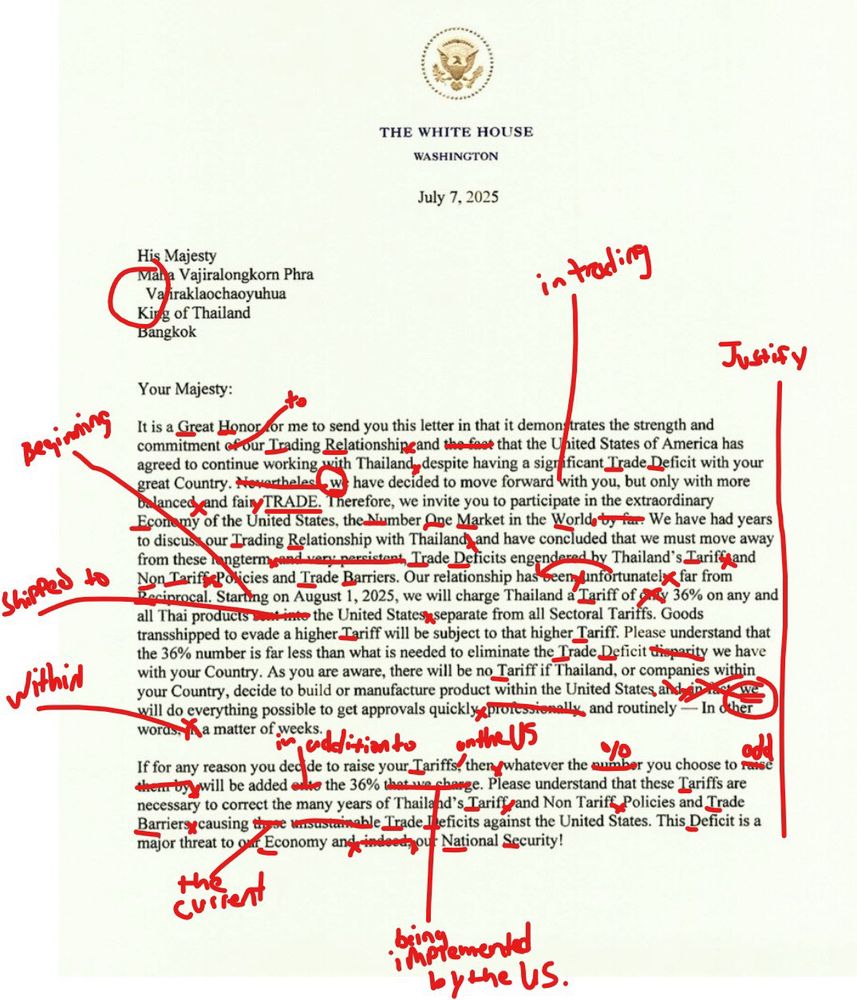 THE WHITE HOUSE
WASHINGTON
July 7, 2025
His Majesty
Maha Vajiralongkorn Phra
Vajiraklaochaoyuhua
King of Thailand
Bangkok
in trading
Justify
Your Majesty:
to
Beginning
It is a Great Honor for me to send you this letter in that it demonstrates the strength and
commitment of our Trading Relationship, and the fact that the United States of America has
agreed to continue working with Thailand, despite having a significant Trade Deficit with your
great Country. Nevertheless, we have decided to move forward with you, but only with more
balanced, and fair, TRADE. Therefore, we invite you to participate in the extraordinary
Economy of the United States, the Number One Market in the World, by far. We have had years
to discuss our Trading Relationship with Thailand, and have concluded that we must move away
from these longterm, and very persistent, Trade Deficits engendered by Thailand's Tariff, and
Non Tariff, Policies and Trade Barriers. Our relationship has been, unfortunately, far from
Reciprocal. Starting on August 1, 2025, we will charge Thailand a Tariff of only 36% on any and
shipped to
all Thai products sent into the United States, separate from all Sectoral Tariffs. Goods
transshipped to evade a higher Tariff will be subject to that higher Tariff. Please understand that
the 36% number is far less than what is needed to eliminate the Trade Deficit disparity we have
with your Country. As you are aware, there will be no Tariff if Thailand, or companies within
within
your Country, decide to build or manufacture product within the United States and, in fact, we
will do everything possible to get approvals quickly, professionally, and routinely — In other
words, in a matter of weeks.
in addition to
on the US
%
add
If for any reason you decide to raise your Tariffs, then, whatever the number you choose to raise
them by, will be added onto the 36% that we charge. Please understand that these Tariffs are
necessary to correct the many years of Thailand's Tariff, and Non Tariff, Policies and Trade
Barriers, causing these unsustainable Trade Deficits against the United States. This Deficit is a
major threat to our Economy and, indeed, our National Security!
the
current
being
implemented
by the US.